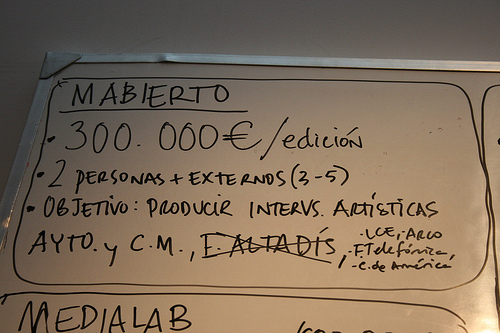 MABIERTO
• 300.000€/edición
• 2 PERSONAS + EXTERNOS (3-5)
• OBJETIVO: PRODUCIR INTERVS. ARTÍSTICAS
AYTO. y C.M., F. ALTADÍS,
- LCE, - ARCO
- F. Telefónica,
- C. de América
MEDIALAB